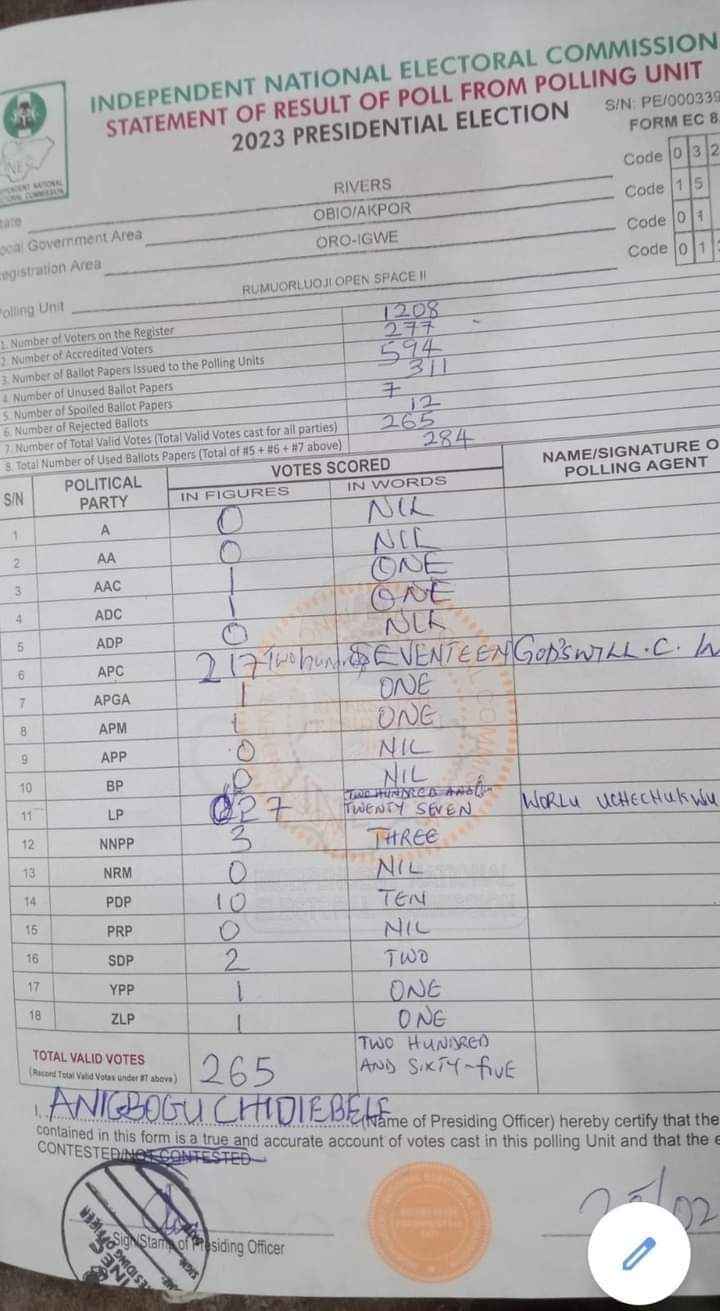 INDEPENDENT NATIONAL ELECTORAL COMMISSION
STATEMENT OF RESULT OF POLL FROM POLLING UNIT
2023 PRESIDENTIAL ELECTION
S/N: PE/000339
FORM EC 8
RIVERS Code 0 3 2
Local Government Area OBIO/AKPOR Code 1 5
Registration Area ORO-IGWE Code 0 1
Polling Unit RUMUORLUOJI OPEN SPACE II Code 0 1
1. Number of Voters on the Register 1208
2. Number of Accredited Voters 277
3. Number of Ballot Papers Issued to the Polling Units 594
4. Number of Unused Ballot Papers 311
5. Number of Spoiled Ballot Papers 7
6. Number of Rejected Ballots 12
7. Number of Total Valid Votes (Total Valid Votes cast for all parties) 265
8. Total Number of Used Ballots Papers (Total of #5 + #6 + #7 above) 284
S/N POLITICAL PARTY VOTES SCORED NAME/SIGNATURE O
POLLING AGENT
IN FIGURES IN WORDS
1 A 0 NIL
2 AA 0 NIL
3 AAC 1 ONE
4 ADC 1 ONE
5 ADP 0 NIL
6 APC 217 Two hun. SEVENTEEN GOD'SWILL . C.
7 APGA 1 ONE
8 APM 1 ONE
9 APP 0 NIL
10 BP 0 NIL
11 LP 27 TWO HUNDRED AND TWENTY SEVEN WORLU UCHECHUKWU
12 NNPP 3 THREE
13 NRM 0 NIL
14 PDP 10 TEN
15 PRP 0 NIL
16 SDP 2 TWO
17 YPP 1 ONE
18 ZLP 1 ONE
TOTAL VALID VOTES 265 TWO HUNDRED
(Record Total Valid Votes under #7 above) AND SIXTY-FIVE
I. ANIGBOGU CHIDIEBELE (Name of Presiding Officer) hereby certify that the
contained in this form is a true and accurate account of votes cast in this polling Unit and that the e
CONTESTED/NOT CONTESTED
Sign/Stamp of Presiding Officer
25/02